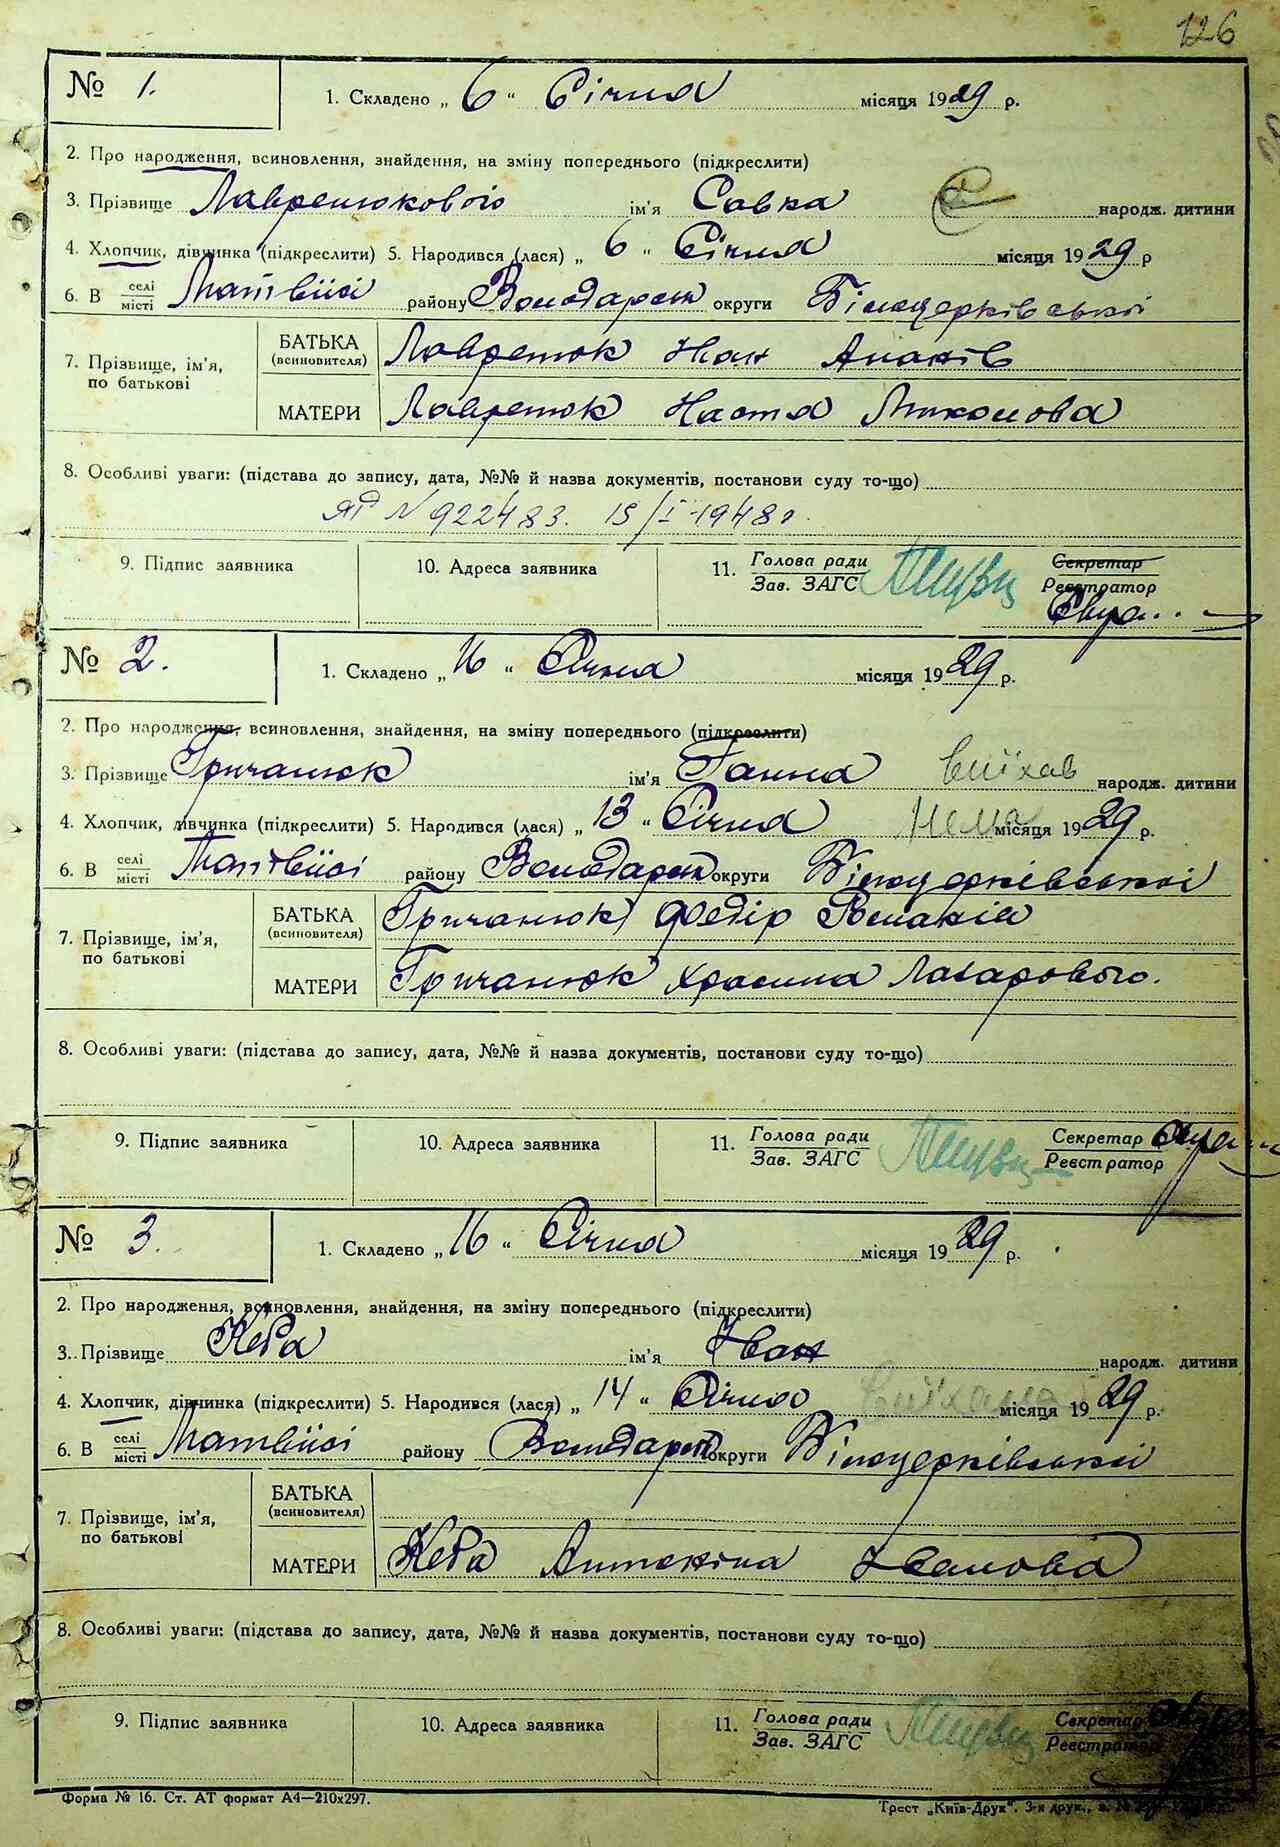 126
№ 1. 1. Складено „ 6 “ Січня місяця 1929 р.
2. Про народження, всиновлення, знайдення, на зміну попереднього (підкреслити)
3. Прізвище Лавренюкового ім'я Савка народж. дитини
4. Хлопчик, дівчинка (підкреслити) 5. Народився (лася) „ 6 “ Січня місяця 1929 р
6. В селі місті Матвіїсі району Володарськ округи Білоцерківської
7. Прізвище, ім'я, по батькові
БАТЬКА (всиновителя) Лавренюк Іван
МАТЕРИ Лавренюк Настя Миколова
8. Особливі уваги: (підстава до запису, дата, №№ й назва документів, постанови суду то-що)
ЯР N 922483. 15/I-1948г.
9. Підпис заявника 10. Адреса заявника 11. Голова ради Зав. ЗАГС Секретар Реєстратор
№ 2. 1. Складено „ 16 “ Січня місяця 1929 р.
2. Про народження, всиновлення, знайдення, на зміну попереднього (підкреслити)
3. Прізвище Гричанюк ім'я Ганна виїхав народж. дитини
4. Хлопчик, дівчинка (підкреслити) 5. Народився (лася) „ 13 “ Січня Нема місяця 1929 р.
6. В селі місті Матвіїсі району Володарськ округи Білоцерківської
7. Прізвище, ім'я, по батькові
БАТЬКА (всиновителя) Гричанюк Федір
МАТЕРИ Гричанюк Лазарового.
8. Особливі уваги: (підстава до запису, дата, №№ й назва документів, постанови суду то-що)
9. Підпис заявника 10. Адреса заявника 11. Голова ради Зав. ЗАГС Секретар Реєстратор
№ 3. 1. Складено „ 16 “ Січня місяця 1929 р.
2. Про народження, всиновлення, знайдення, на зміну попереднього (підкреслити)
3. Прізвище Кеба ім'я Іван народж. дитини
4. Хлопчик, дівчинка (підкреслити) 5. Народився (лася) „ 14 “ Січня місяця 1929 р.
6. В селі місті Матвіїсі району Володарськ округи Білоцерківської
7. Прізвище, ім'я, по батькові
БАТЬКА (всиновителя)
МАТЕРИ Кеба Антоніна Іванова
8. Особливі уваги: (підстава до запису, дата, №№ й назва документів, постанови суду то-що)
9. Підпис заявника 10. Адреса заявника 11. Голова ради Зав. ЗАГС Секретар Реєстратор
Форма № 16. Ст. АТ формат А4—210x297. Трест „Київ-Друк“. 3-я друк.